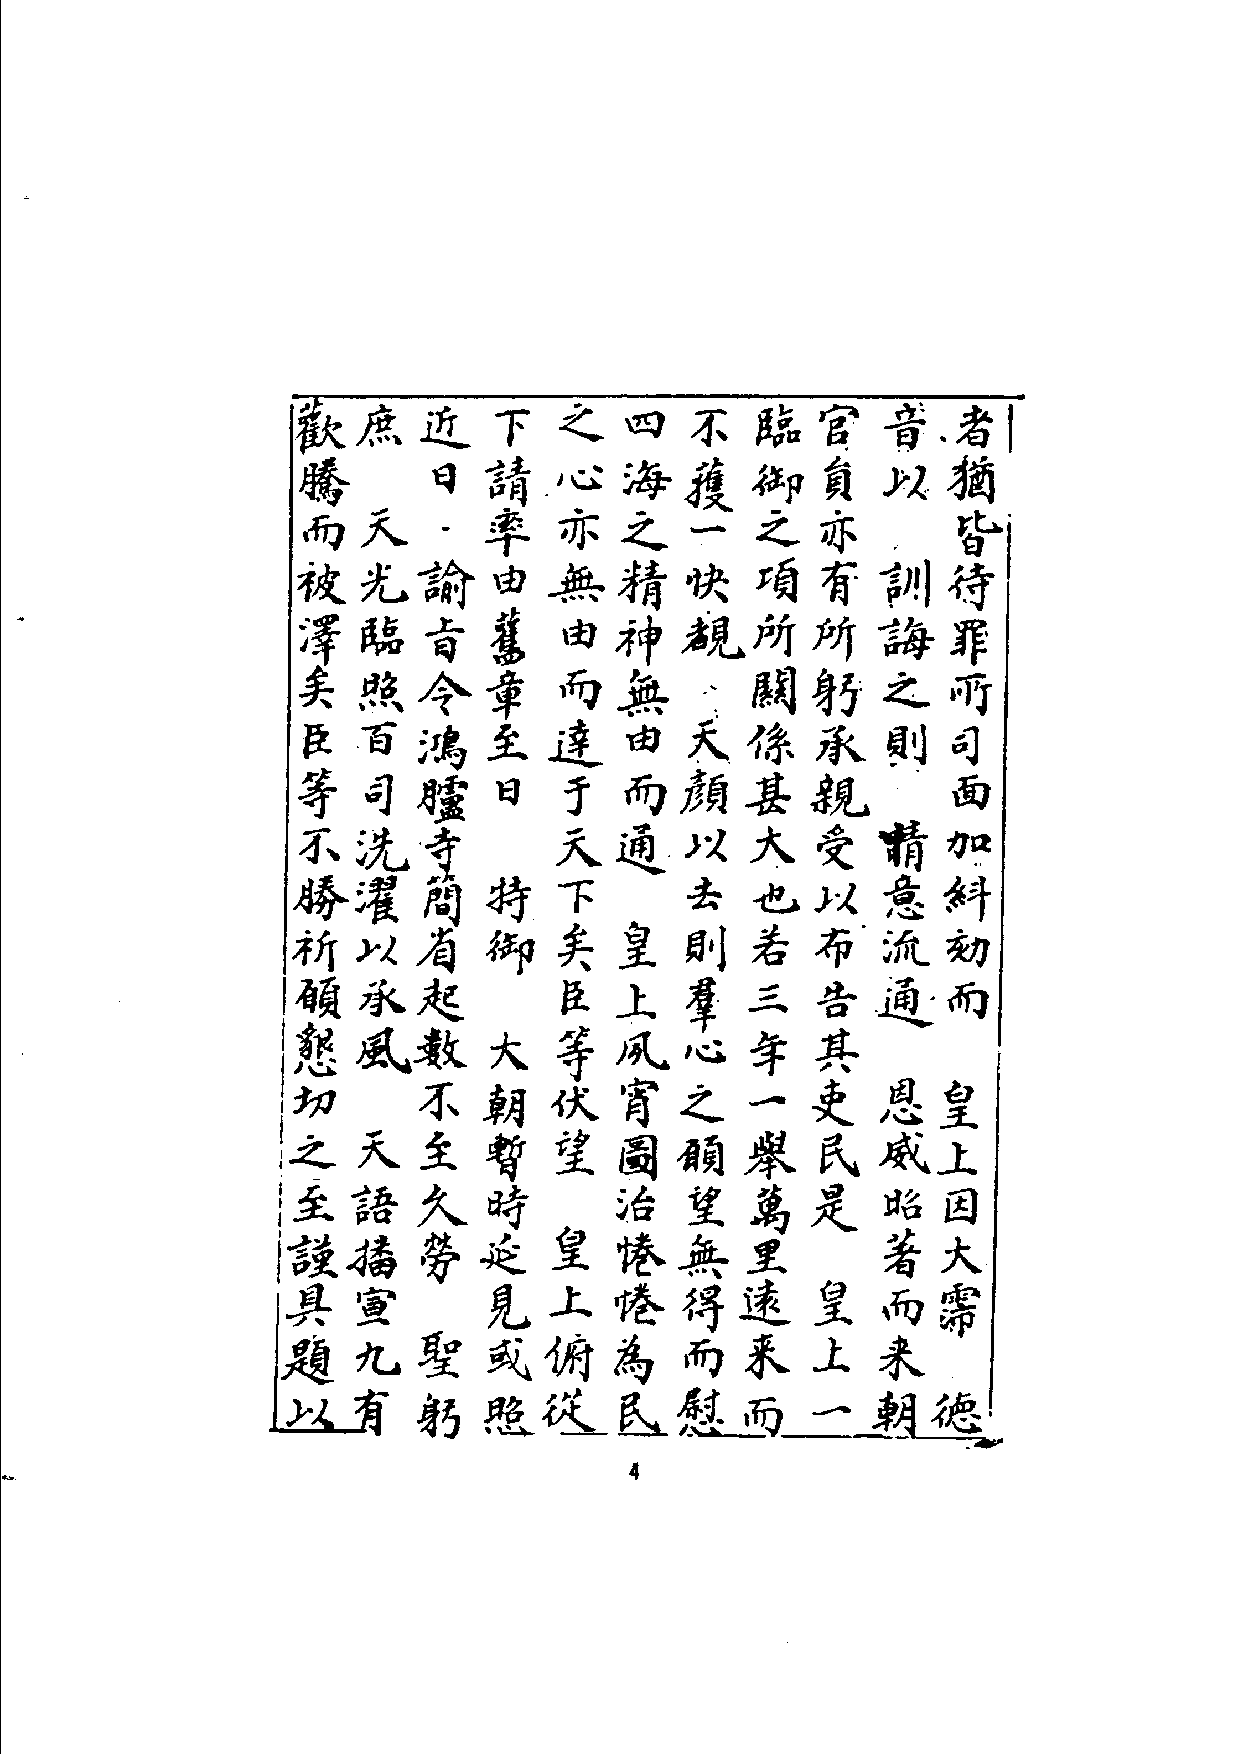 者猶皆待罪所司面加糾劾而　皇上因大霈　德
音以　訓誨之則　精意流通　恩威昭著而来朝
官員亦有所躬承親受以布告其吏民是　皇上一
臨御之項所關係甚大也若三年一舉萬里遠来而
不獲一快覩　天顔以去則羣心之願望無得而慰
四海之精神無由而通　皇上夙宵圖治惓惓為民
之心亦無由而達于天下矣臣等伏望　皇上俯從
下請率由舊章至日　特御　大朝暫時延見或照
近日　諭旨令鴻臚寺簡省起數不至久勞　聖躬
庶　天光臨照百司洗濯以承風　天語播宣九有
歡騰而被澤矣臣等不勝祈願懇切之至謹具題以
4